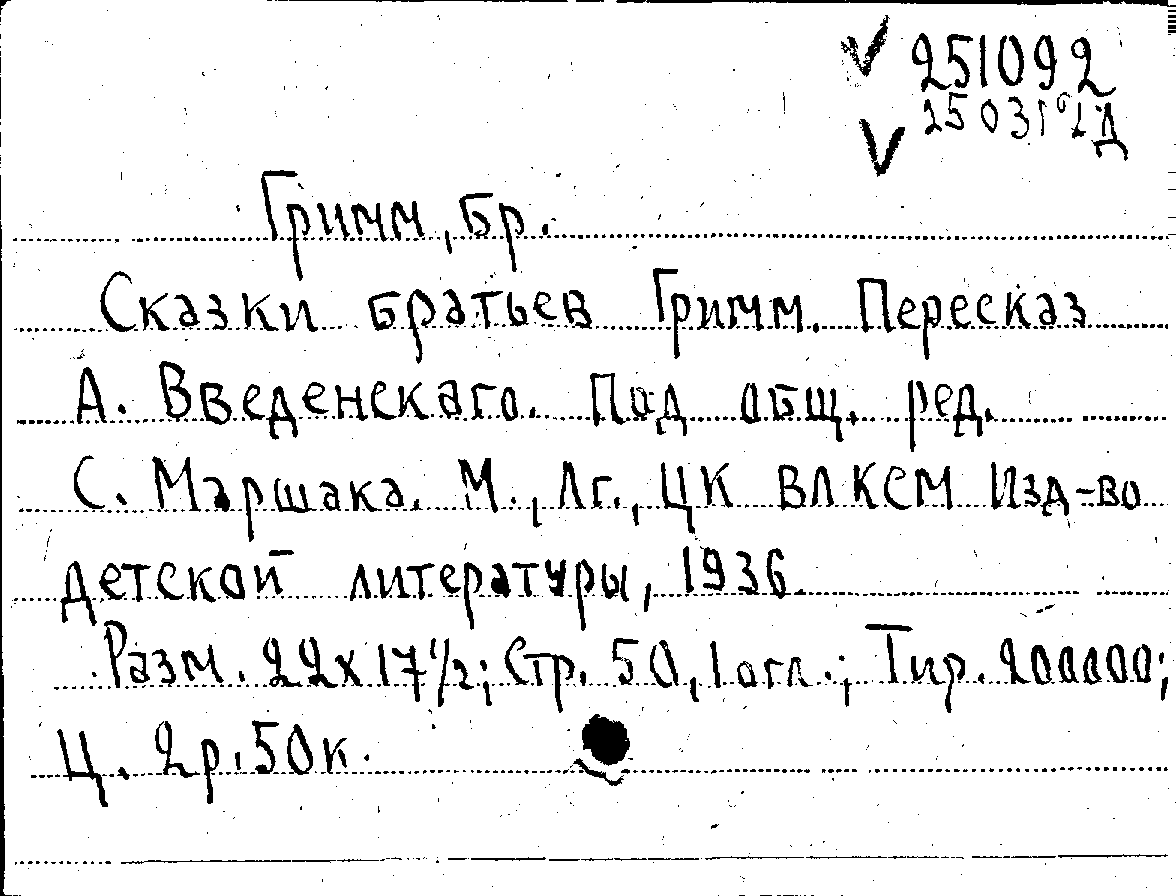 251092
Гримм, бр.
Сказки братьев Гримм. Пересказ
А. Введенскаго. Под общ. ред.
С. Маршака. М., Лг., ЦК ВЛКСМ Изд-во
детской литературы, 1936.
Разм. 22х17½; Стр. 50, 1 огл.; Тир. 200000;
Ц. 2р. 50к.